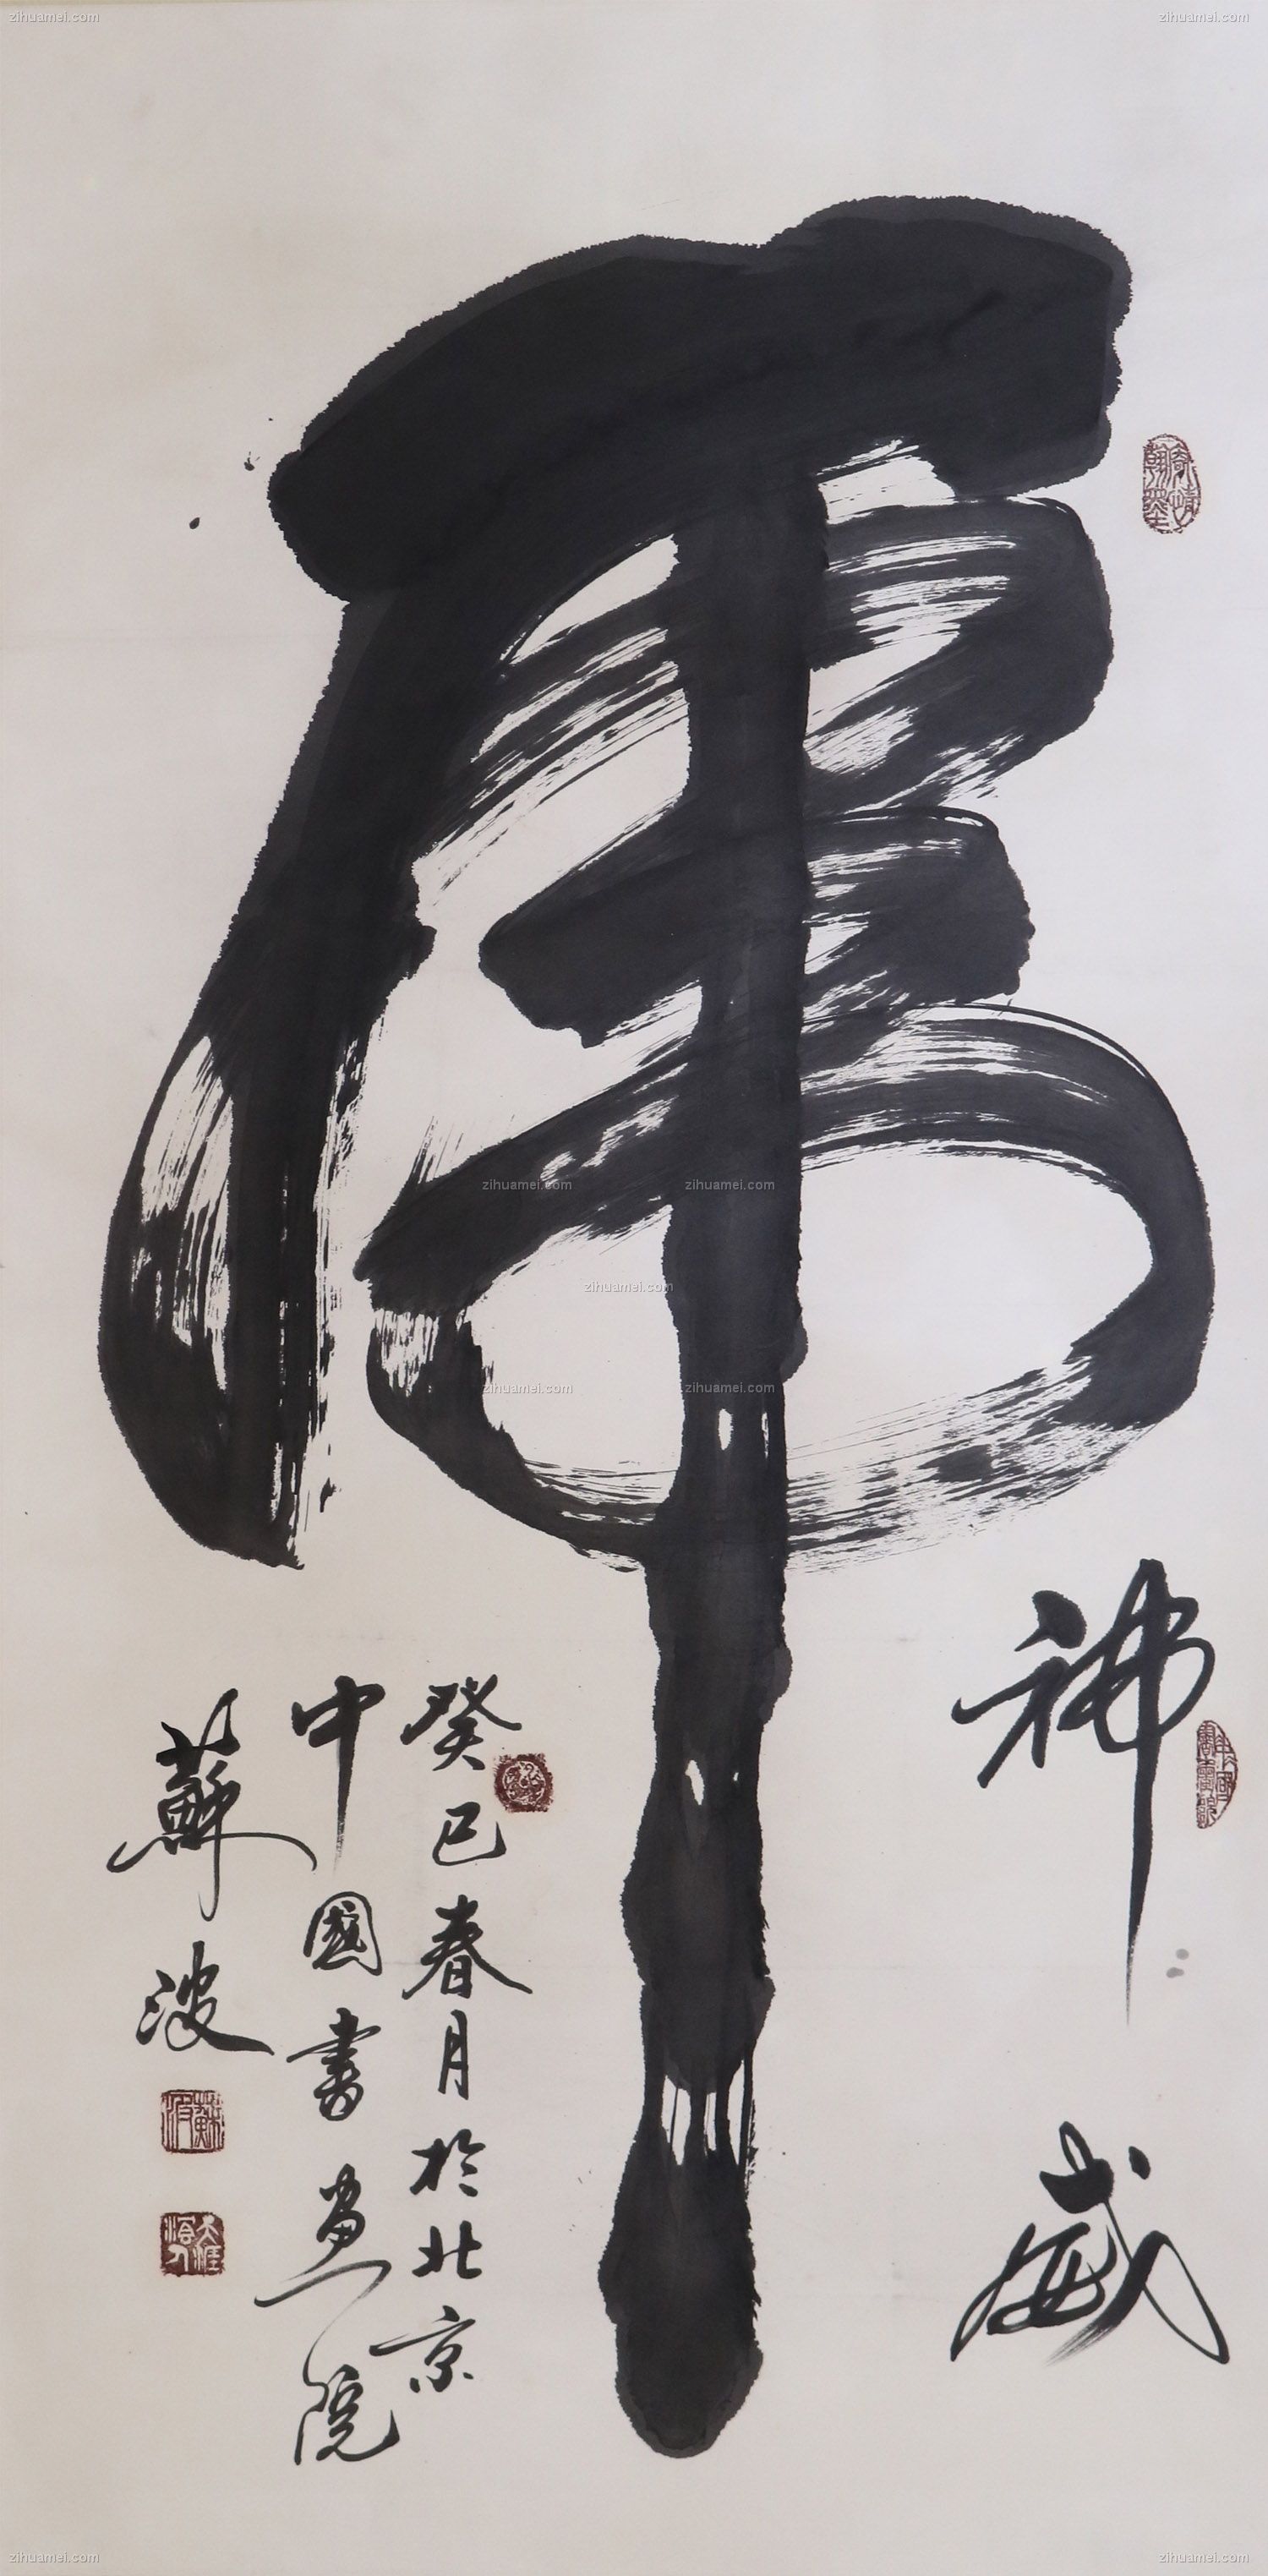 虎
神威
癸巳春月於北京
中國書畫院
蘇波
蘇波
zihuamei.com
zihuamei.com
zihuamei.com
zihuamei.com
zihuamei.com
zihuamei.com
zihuamei.com
zihuamei.com
zihuamei.com